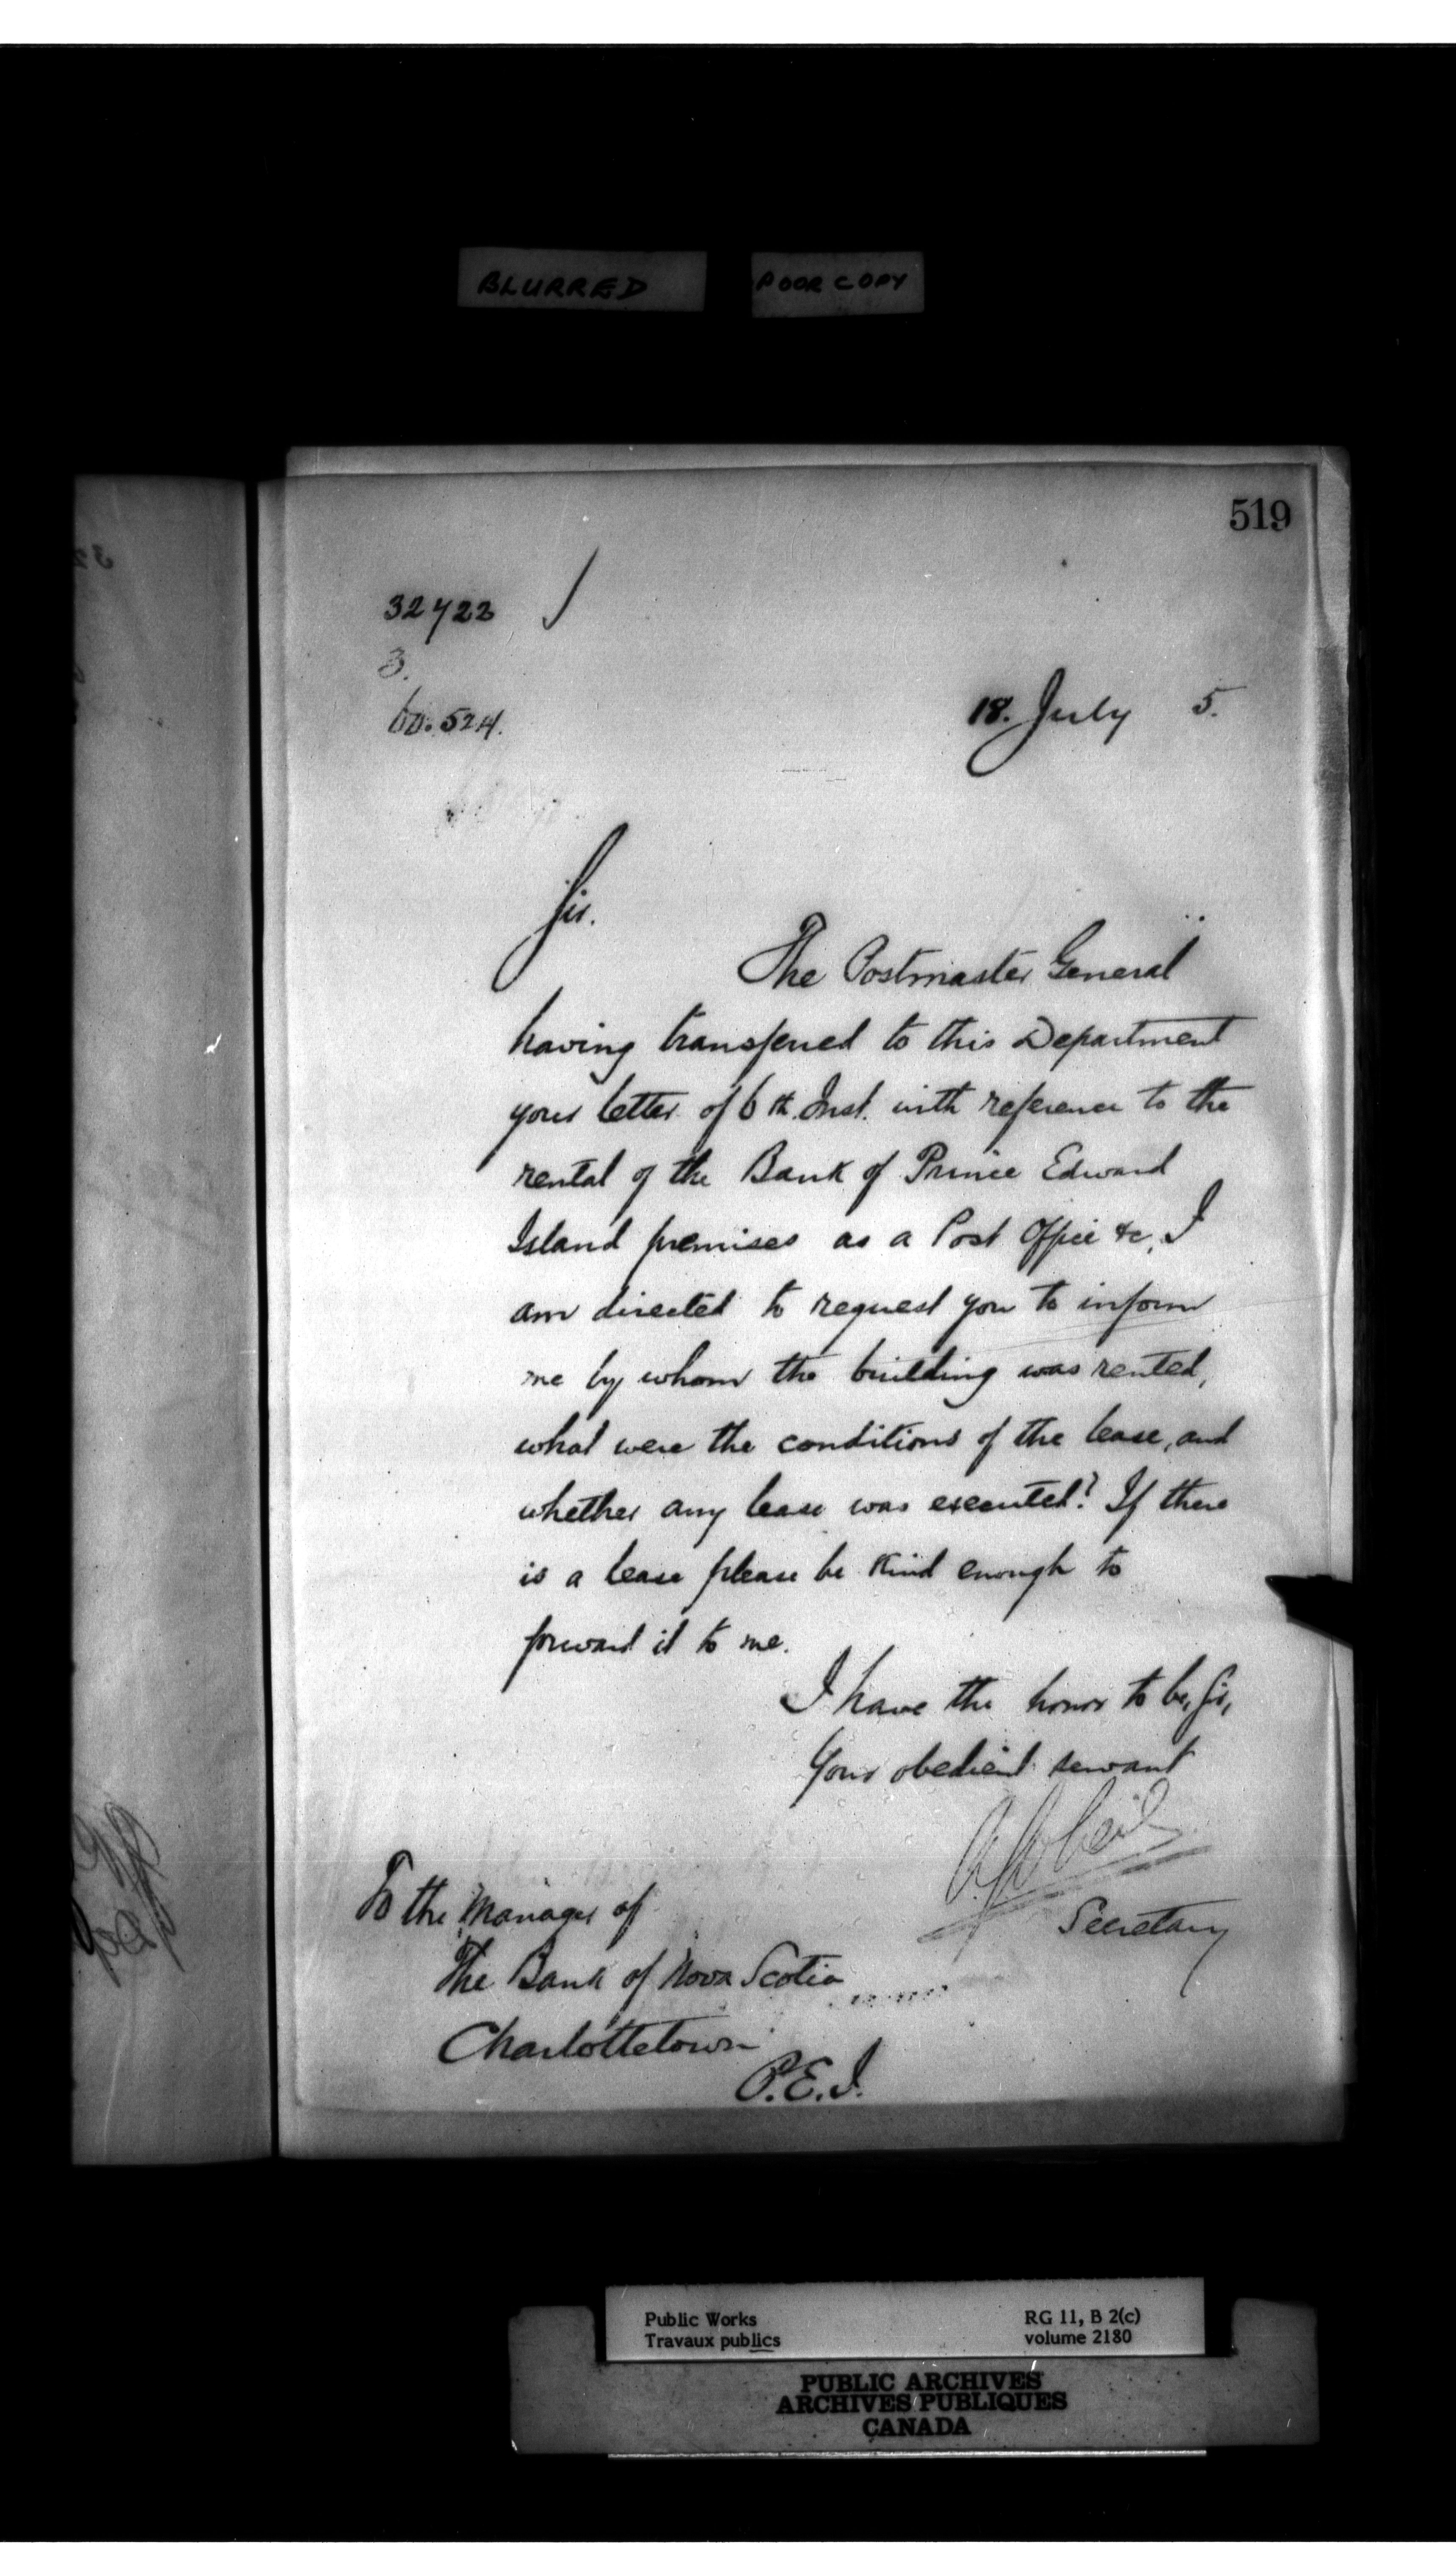 BLURRED
POOR COPY
519
32723
3.
60.524.
18. July 5.
Sir.
The Postmaster General
having transfered to this Department
your letter of 6th. Inst. with reference to the
rental of the Bank of Prince Edward
Island premises as a Post Office &c, I
am directed to request you to inform
me by whom the building was rented,
what were the conditions of the lease, and
whether any lease was executed? If there
is a lease please be kind enough to
forward it to me.
I have the honor to be, Sir,
Your obedient servant
Secretary
To the Manager of
The Bank of Nova Scotia
Charlottetown
P.E.I.
Public Works
Travaux publics
RG 11, B 2(c)
volume 2180
PUBLIC ARCHIVES
ARCHIVES PUBLIQUES
CANADA